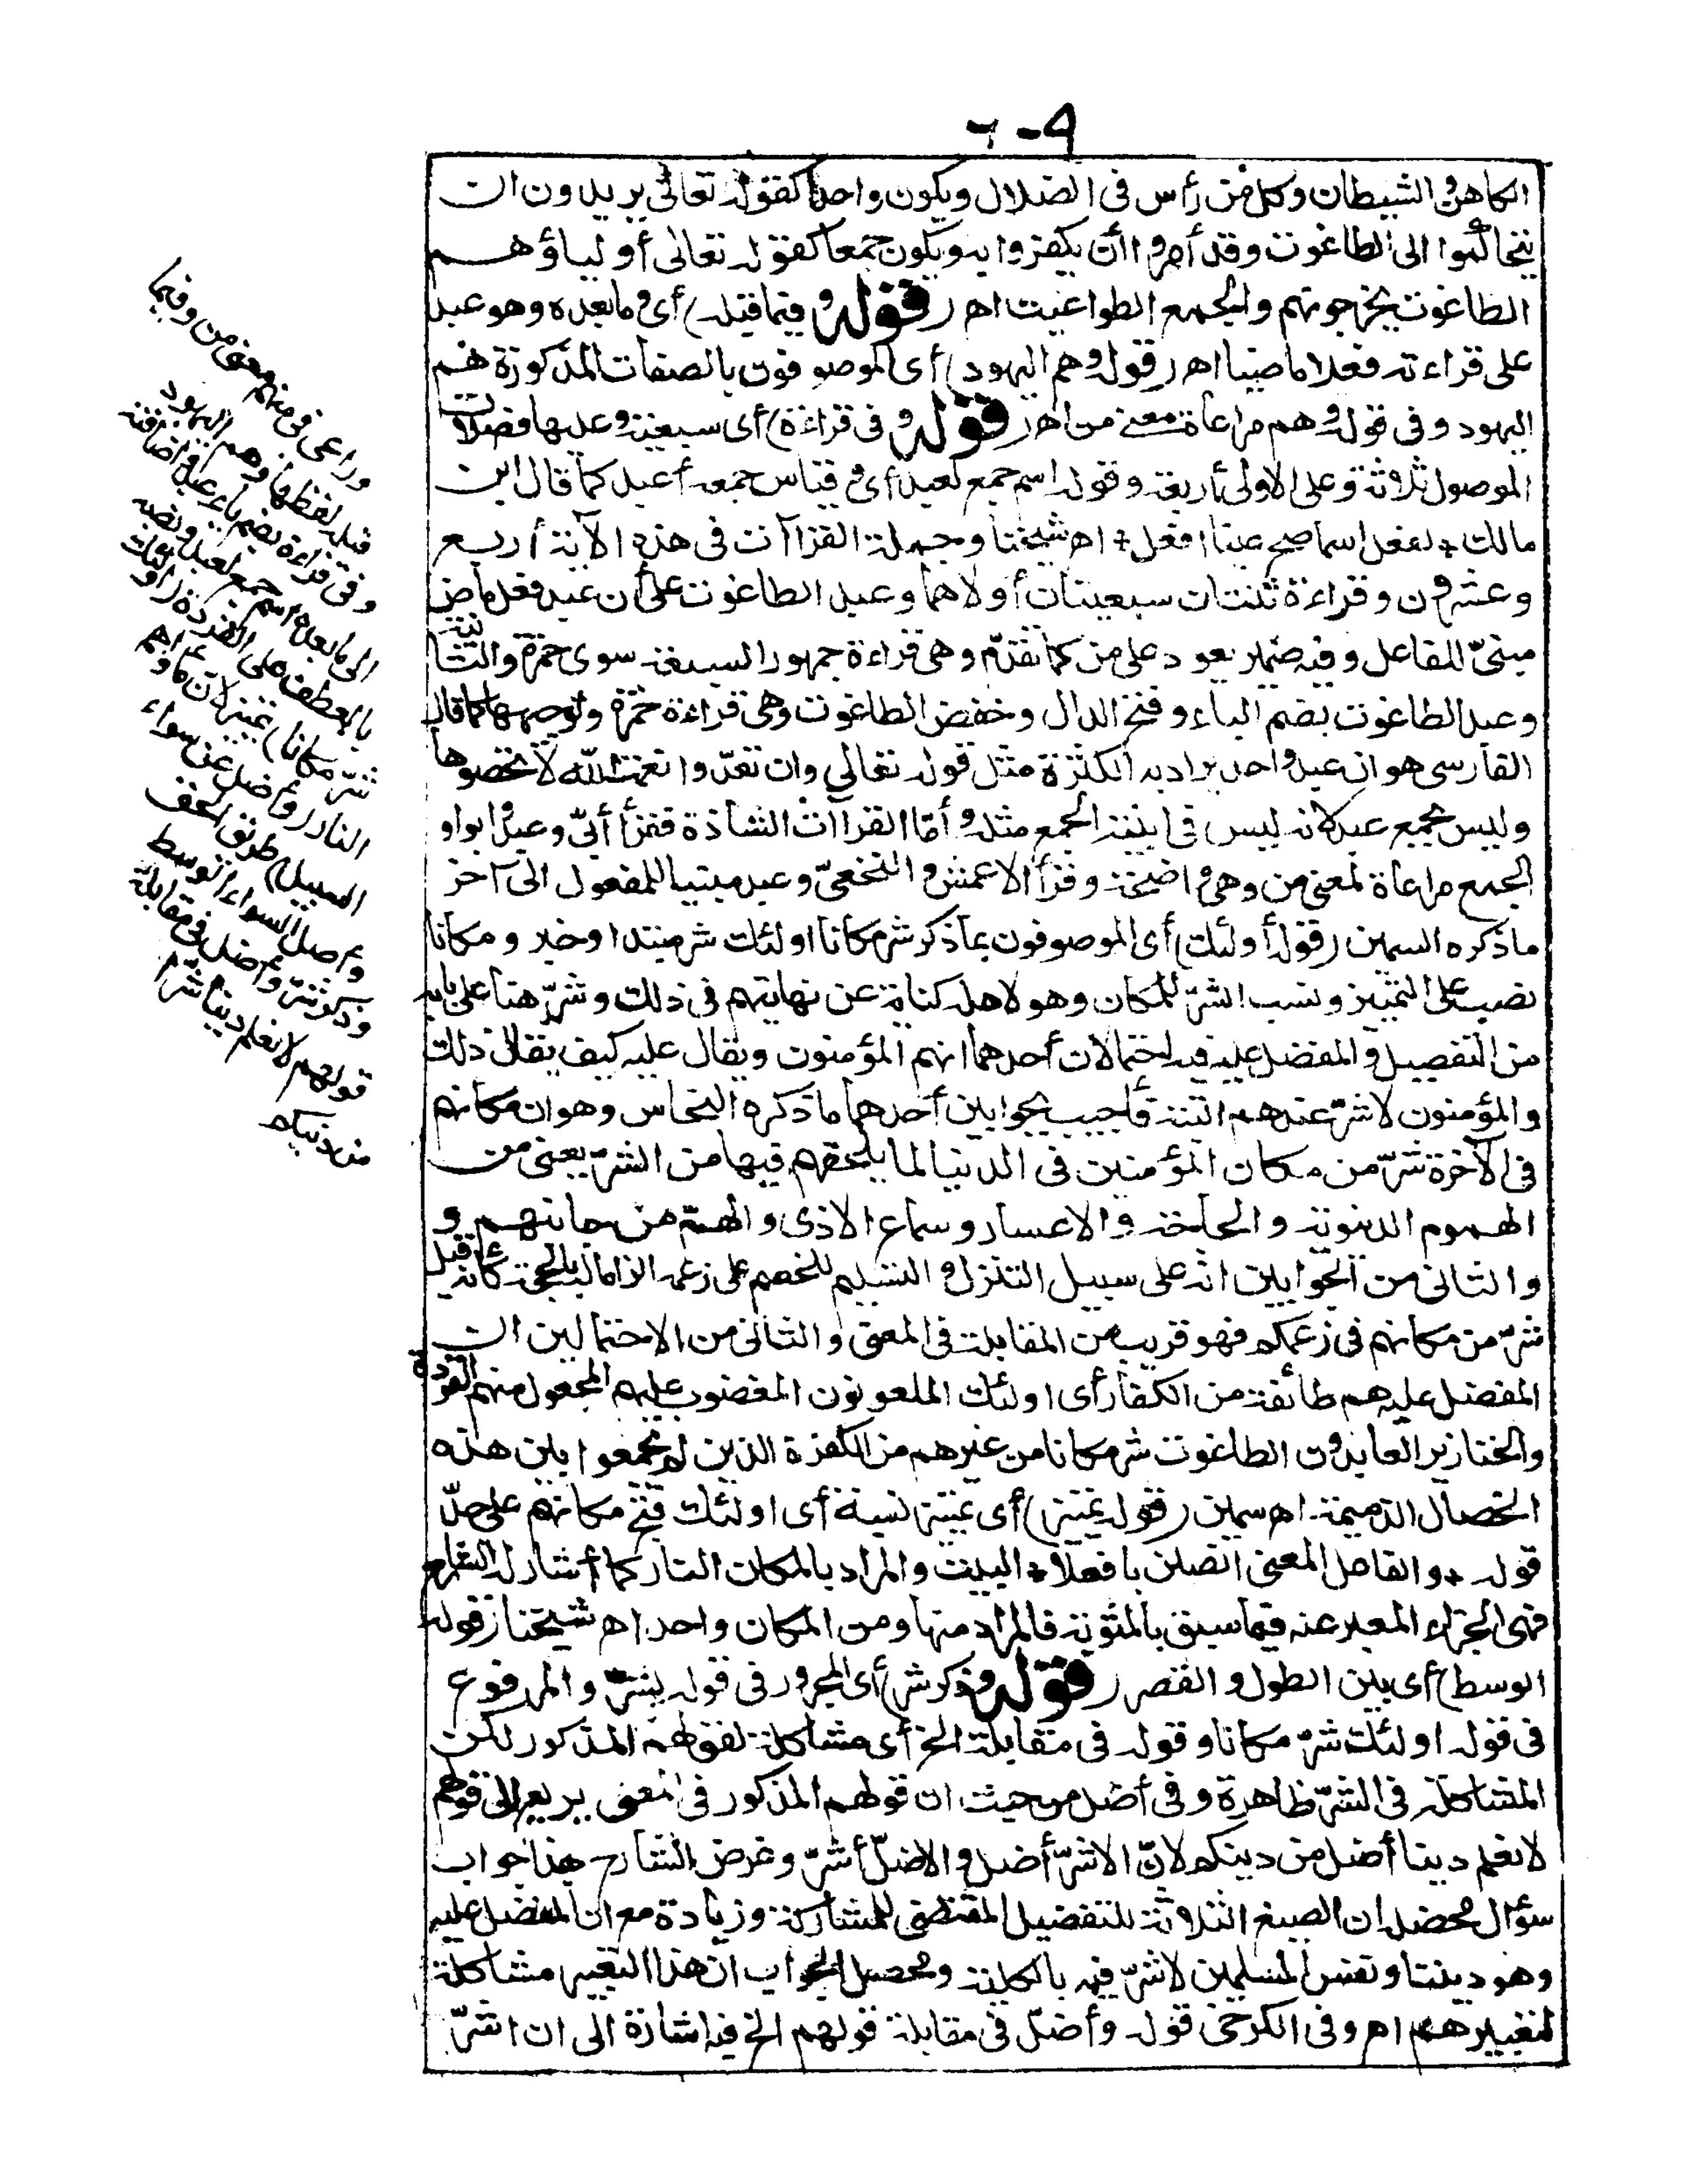 ٦-٩
الكاهن والشيطان وكل من رأس فى الضلال ويكون واحدا كقوله تعالى يريدون ان
يتحاكموا الى الطاغوت وقد أمروا أن يكفروا به ويكون جمعا كقوله تعالى أولياؤهم
الطاغوت يخرجونهم والجمع الطواغيت اهـ (قوله وفيما قبله) أى وما بعده وهو عبد
على قراءته فعلا ماضيا اهـ (قوله وهم اليهود) أى الموصوفون بالصفات المذكورة هم
اليهود وفى قوله وهم مراعاة معنى من اهـ (قوله وفى قراءة) أى سبعية وعليها فصلات
الموصول ثلاثة وعلى الاولى أربعة وقوله اسم جمع لعبد أى وقياس جمعه أعبد كما قال ابن
مالك + لفعل اسما صح عينا افعل + اهـ شيخنا وجملة القراآت فى هذه الآية أربع
وعشرون وقراءة ثنتان سبعيتان أولاهما وعبد الطاغوت على أن عبد فعل ماض
مبنىّ للفاعل وفيه ضمير يعود على من كما تقدّم وهى قراءة جمهور السبعة سوى حمزة والثانية
وعبد الطاغوت بضم الباء وفتح الدال وخفض الطاغوت وهى قراءة حمزة وتوجيهها كما قال
الفارسى هو ان عبد واحد يراد به الكثرة مثل قوله تعالى وان تعدّوا نعمت الله لا تحصوها
وليس بجمع عبد لانه ليس فى ابنية الجمع مثله وأمّا القراآت الشاذة فقرأ أبىّ وعبدوا بواو
الجمع مراعاة لمعنى من وهى واضحة وقرأ الاعمش والنخعىّ وعبد مبنيا للمفعول الى آخر
ما ذكره السمين (قوله أولئك) أى الموصوفون بما ذكر شر مكانا اولئك شر مبتدا وخبر ومكانا
نصب على التمييز ونسب الشرّ للمكان وهو لاهله كناية عن نهايتهم فى ذلك وشرّ هنا على بابه
من التفضيل والمفضل عليه فيه احتمالان أحدهما انهم المؤمنون ويقال عليه كيف يقال ذلك
والمؤمنون لا شرّ عندهم البتة فأجيب بجوابين أحدهما ما ذكره النحاس وهو ان مكانهم
فى الآخرة شرّ من مكان المؤمنين فى الدنيا لما يلحقهم فيها من الشرّ يعنى من
الهموم الدنيوية والحاجة والاعسار وسماع الاذى والهمّ من جانبهم و
والثانى من الجوابين انه على سبيل التنزل والتسليم للخصم على زعمه الزاما له بالحجة كأنه قيل
شرّ من مكانهم فى زعمكم فهو قريب من المقابلة فى المعنى والثانى من الاحتمالين ان
المفضل عليه هم طائفة من الكفار أى اولئك الملعونون المغضوب عليهم المجعول منهم القردة
والخنازير العابدون الطاغوت شر مكانا من غيرهم من الكفرة الذين لم يجمعوا بين هذه
الخصال الذميمة اهـ سمين (قوله تمييز) أى تمييز نسبة أى اولئك قبح مكانهم على حدّ
قوله + والفاعل المعنى انصبن بافعلا + البيت والمراد بالمكان النار كما أشار له الشارح
فهى الجزاء المعبر عنه فيما سبق بالمثوبة فالمراد منها ومن المكان واحد اهـ شيخنا (قوله
الوسط) أى بين الطول والقصر (قوله وذكر شر) أى المجرور فى قوله بشرّ والمرفوع
فى قوله اولئك شرّ مكانا وقوله فى مقابلة الخ أى مشاكلة لقولهم المذكور لكن
المشاكلة فى الشرّ ظاهرة وفى أضل من حيث ان قولهم المذكور فى المعنى يرجع الى قولهم
لا نعلم دينا أضل من دينكم لانّ الاشرّ أضل والاضلّ أشرّ وغرض الشارح بهذا جواب
سؤال محصله ان الصيغ الثلاثة للتفضيل المقتضى للمشاركة وزيادة مع ان المفضل عليه
وهو ديننا ونفس المسلمين لا شرّ فيه بالكلية ومحصل الجواب ان هذا التعبير مشاكلة
لتعبيرهم اهـ وفى الكرخى قوله وأضلّ فى مقابلة قولهم الخ فيه اشارة الى ان اشرّ
وراعى فى منهم معنى من وفيما
قبله لفظها وهم اليهود
وفى قراءة بضم باء عبد واضافته
الى ما بعده اسم جمع لعبد ونصبه
بالعطف على القردة (اولئك
شرّ مكانا) تمييز لان مأواهم
النار (وأضل عن سواء
السبيل) طريق الحق
وأصل السواء الوسط
وذكر شرّ وأضل فى مقابلة
قولهم لا نعلم دينا شرّا
من دينكم